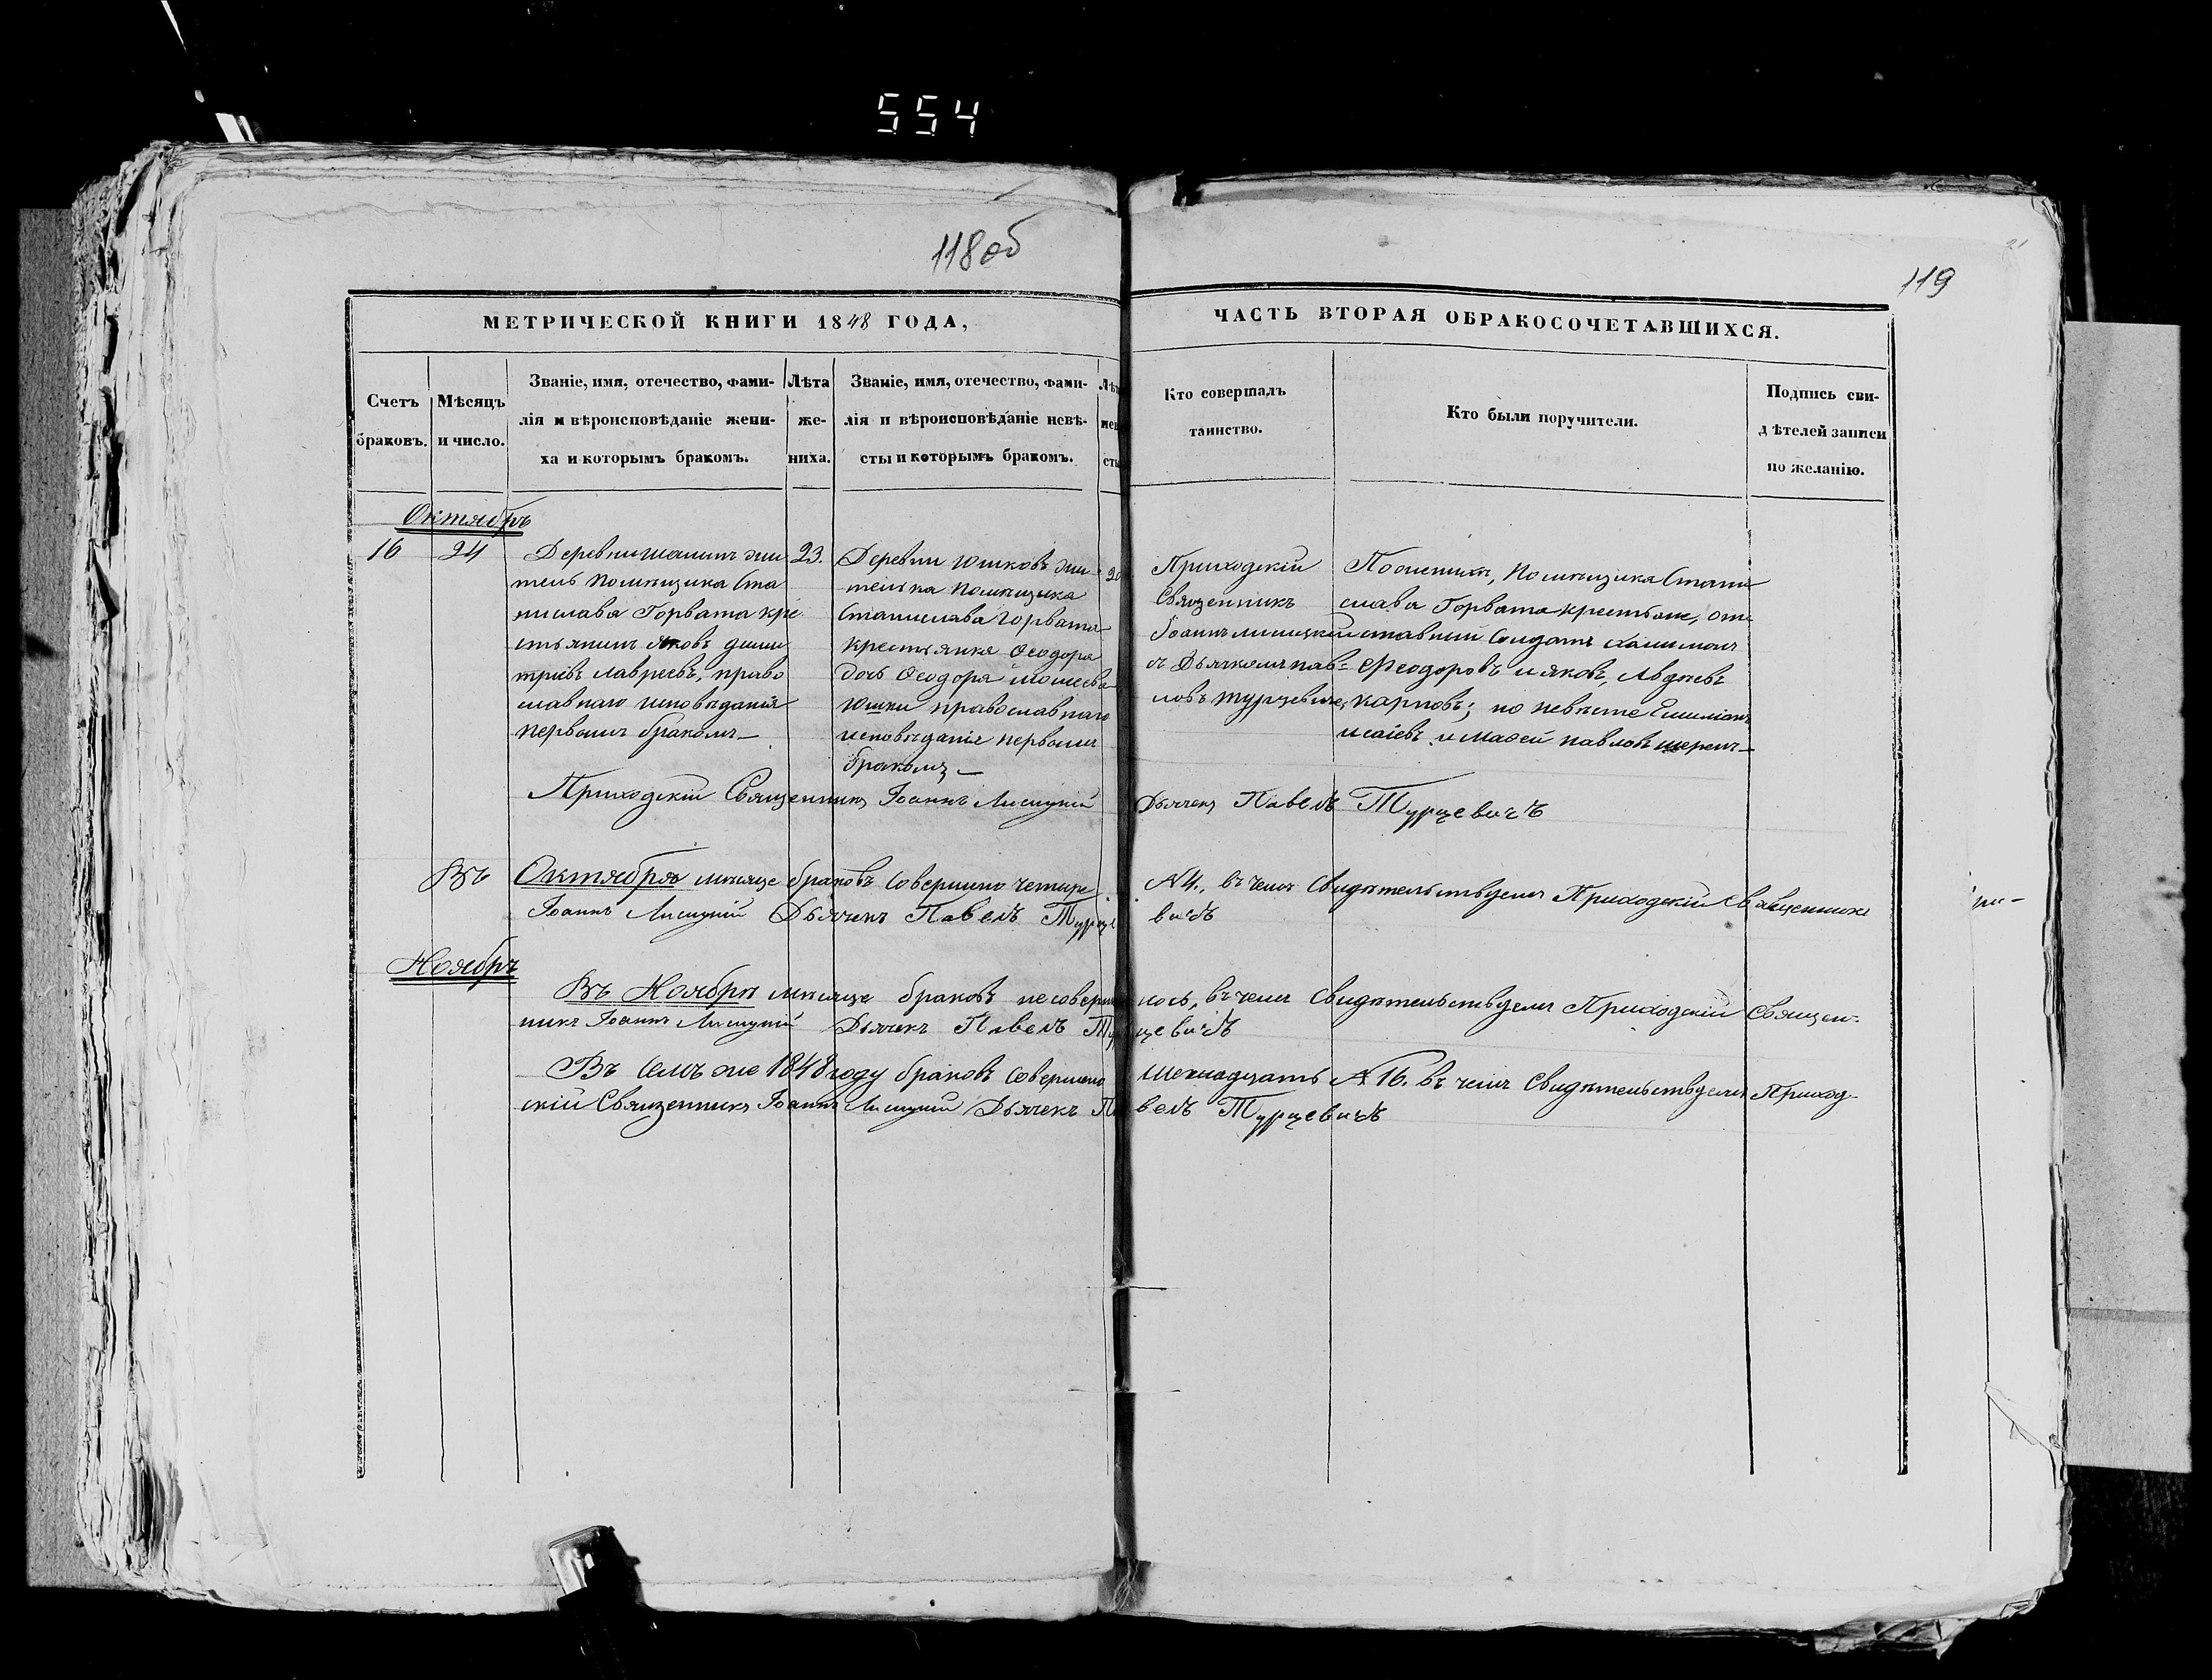 554
118 об
119
МЕТРИЧЕСКОЙ КНИГИ 1848 ГОДА,
ЧАСТЬ ВТОРАЯ ОБРАКОСОЧЕТАВШИХСЯ.
Счетъ
браковъ.
Мѣсяцъ
и число.
Званіе, имя, отечество, фами-
лія и вѣроисповѣданіе жени-
ха и которымъ бракомъ.
Лѣта
же-
ниха.
Званіе, имя, отечество, фами-
лія и вѣроисповѣданіе невѣ-
сты и которымъ бракомъ.
Кто совершалъ
таинство.
Кто были поручители.
Подпись сви-
дѣтелей записи
по желанію.
Октябрь
16
24
Деревни жи
тель помѣщика Ста
нислава Горвата кре
стьянинъ Яковъ дими
тріевъ лавріевъ, право
славнаго исповѣданія
первымъ бракомъ
23.
Деревни Юшковъ жи-
телька помѣщика
Станислава Горвата
крестьянка Ѳеодора
дочь Ѳеодора
Юшки православнаго
исповѣданія первымъ
бракомъ
20
Приходскій
Священникъ
Іоаннъ лисицкій
съ Дьячкомъ пав=
ломъ турцевичемъ
По женихѣ, помѣщика Стани
слава Горвата крестьяне, от
ставный Солдатъ
Ѳеодоровъ и яковъ, Авдѣевъ
карповъ; по невѣстѣ Емиліанъ
исаіевъ и Маѳей павловъ
Приходскій Священникъ Іоаннъ Лисицкій Дьячекъ Павелъ Турцевичъ
Въ Октябрѣ мѣсяце браковъ совершино четыре №4., въ чемъ свидѣтельствуемъ Приходскій Священникъ
Іоаннъ Лисицкій Дьячекъ Павелъ Турцевичъ
Ноябрь
Въ Ноябрѣ мѣсяце браковъ несовершилось, въ чемъ свидѣтельствуемъ Приходскій Священ-
никъ Іоаннъ Лисицкій Дьячекъ Павелъ Турцевичъ
Въ семъ же 1848 году браковъ совершено шеснадцать №16. въ чемъ свидѣтельствуемъ Приход-
скій Священникъ Іоаннъ Лисицкій Дьячекъ Павелъ Турцевичъ